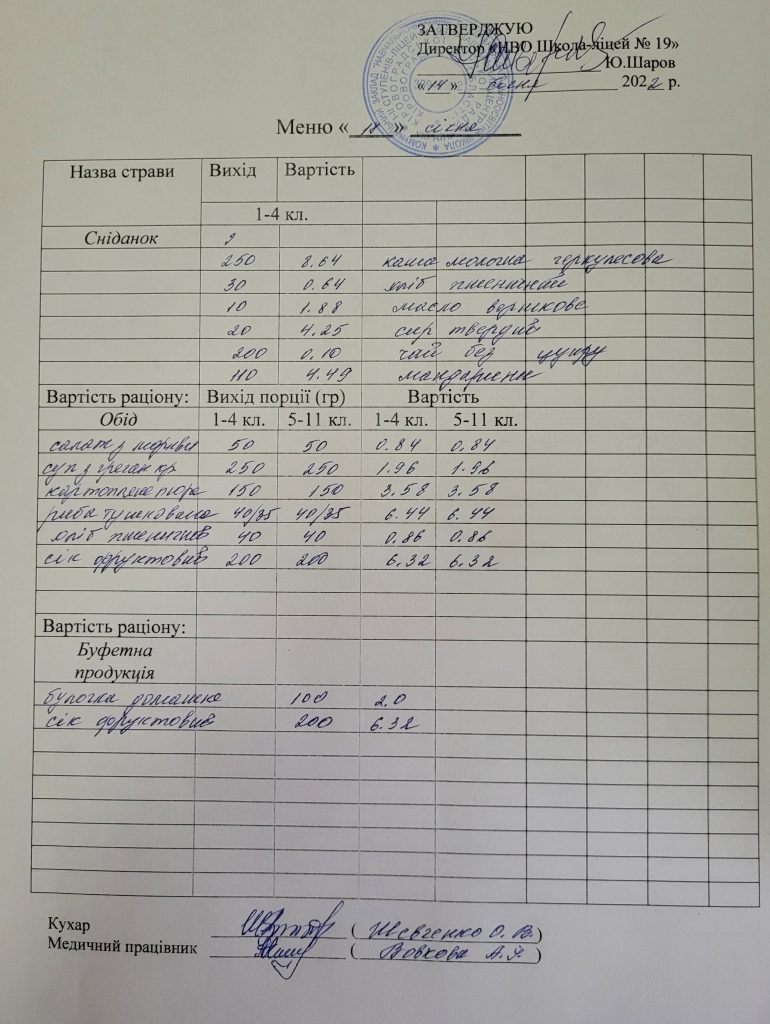 ЗАТВЕРДЖУЮ
Директор «НВО Школа-ліцей № 19»
Ю.Шаров
«14» січня 2022 р.
Меню «18» січня
Назва страви Вихід Вартість
1-4 кл.
Сніданок
250 8.64 каша молочна геркулесова
30 0.64 хліб пшеничний
10 1.88 масло вершкове
20 4.25 сир твердий
200 0.10 чай без цукру
110 4.49 мандарини
Вартість раціону: Вихід порції (гр) Вартість
Обід 1-4 кл. 5-11 кл. 1-4 кл. 5-11 кл.
салат з моркви 50 50 0.84 0.84
суп з гречан кр 250 250 1.96 1.96
картопляне пюре 150 150 3.58 3.58
риба тушкована 40/35 40/35 6.44 6.44
хліб пшеничний 40 40 0.86 0.86
сік фруктовий 200 200 6.32 6.32
Вартість раціону:
Буфетна
продукція
булочка домашня 100 2.0
сік фруктовий 200 6.32
Кухар (Шевченко О. В.)
Медичний працівник (Вовкова А.)